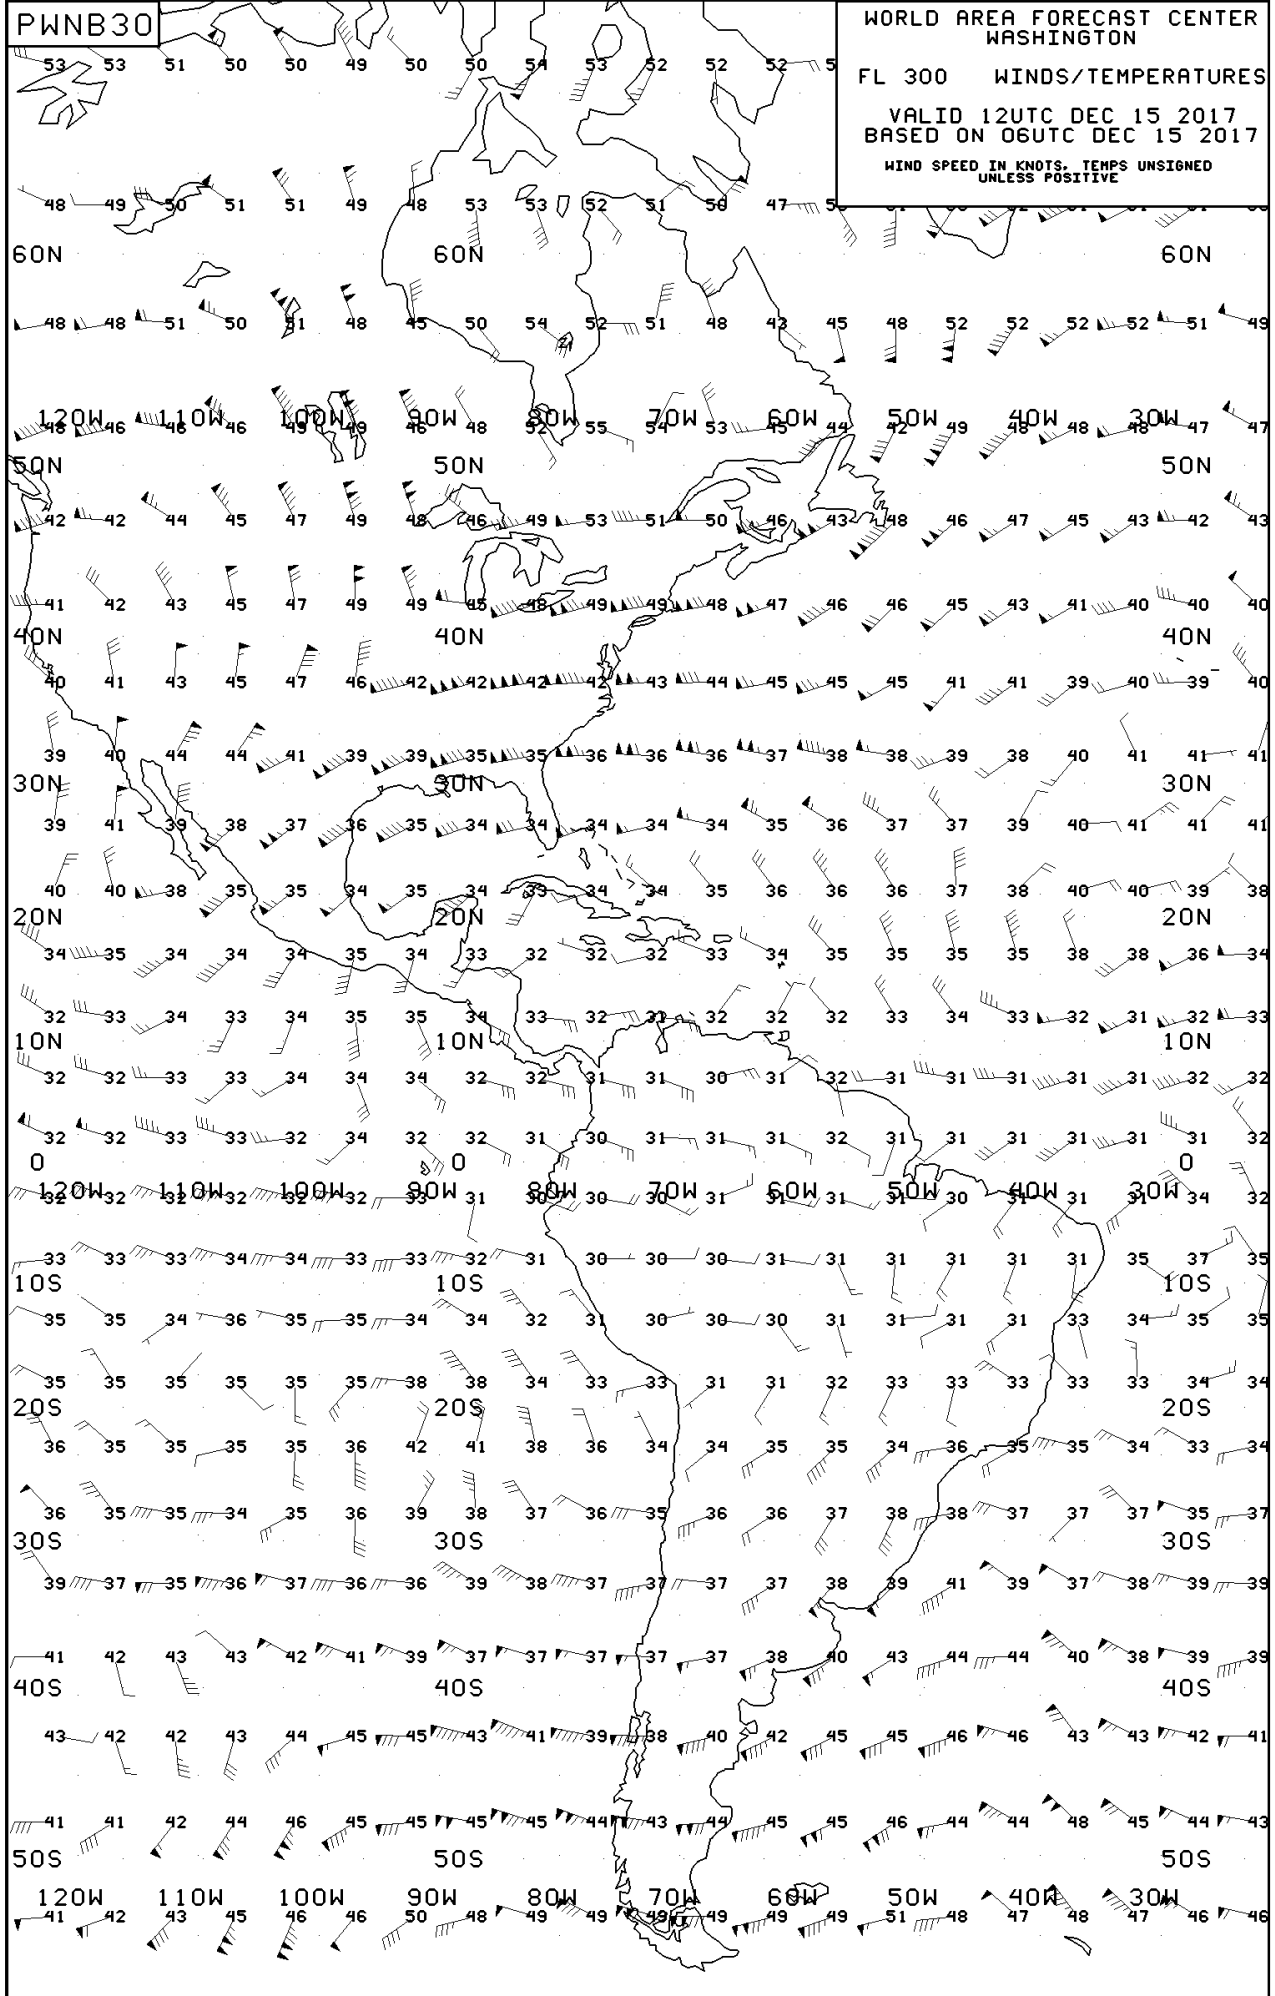 PWNB30
WORLD AREA FORECAST CENTER
WASHINGTON
FL 300 WINDS/TEMPERATURES
VALID 12UTC DEC 15 2017
BASED ON 06UTC DEC 15 2017
WIND SPEED IN KNOTS, TEMPS UNSIGNED
UNLESS POSITIVE
53 53 51 50 50 49 50 50 54 53 52 52 52
48 49 50 51 51 49 48 53 53 52 51 50 47
60N 60N 60N
48 48 51 50 51 48 45 50 54 52 51 48 43 45 48 52 52 52 52 51 49
120W 110W 100W 90W 80W 70W 60W 50W 40W 30W
48 46 46 46 49 49 46 48 52 55 54 53 45 44 42 49 48 48 48 47 47
50N 50N
42 42 44 45 47 49 48 46 49 53 51 50 46 43 48 46 47 45 43 42 43
41 42 43 45 47 49 49 45 48 49 49 48 47 46 46 45 43 41 40 40 40
40N 40N 40N
40 41 43 45 47 46 42 42 42 42 43 44 45 45 45 41 41 39 40 39 40
39 40 44 44 41 39 39 35 35 36 36 36 37 38 38 39 38 40 41 41 41
30N 30N 30N
39 41 39 38 37 36 35 34 34 34 34 34 35 36 37 37 39 40 41 41 41
40 40 38 35 35 34 35 34 33 34 34 35 36 36 36 37 38 40 40 39 38
20N 20N 20N
34 35 34 34 34 35 34 33 32 32 32 33 34 35 35 35 35 38 38 36 34
32 33 34 33 34 35 35 34 33 32 31 32 32 32 33 34 33 32 31 32 33
10N 10N 10N
32 32 33 33 34 34 34 32 32 31 31 30 31 32 31 31 31 31 31 32 32
32 32 33 33 32 34 32 32 31 30 31 31 31 32 31 31 31 31 31 31 32
0 0 0
120W 110W 100W 90W 80W 70W 60W 50W 40W 30W
32 32 32 32 32 32 33 31 30 30 30 31 31 31 31 30 31 31 31 34 32
33 33 33 34 34 33 33 32 31 30 30 30 31 31 31 31 31 31 35 37 35
10S 10S 10S
35 35 34 36 35 35 34 34 32 31 30 30 30 31 31 31 31 33 34 35 35
35 35 35 35 35 35 38 38 34 33 33 31 31 32 33 33 33 33 33 34 34
20S 20S 20S
36 35 35 35 35 36 42 41 38 36 34 34 35 35 34 36 35 35 34 33 34
36 35 35 34 35 36 39 38 37 36 35 36 36 37 38 38 37 37 37 35 37
30S 30S 30S
39 37 35 36 37 36 36 39 38 37 37 37 37 38 39 41 39 37 38 39 39
41 42 43 43 42 41 39 37 37 37 37 37 38 40 43 44 44 40 38 39 39
40S 40S 40S
43 42 42 43 44 45 45 43 41 39 38 40 42 45 45 46 46 43 43 42 41
41 41 42 44 46 45 45 45 45 44 43 44 45 45 46 44 44 48 45 44 43
50S 50S 50S
120W 110W 100W 90W 80W 70W 60W 50W 40W 30W
41 42 43 45 46 46 50 48 49 49 49 49 49 49 51 48 47 48 47 46 46